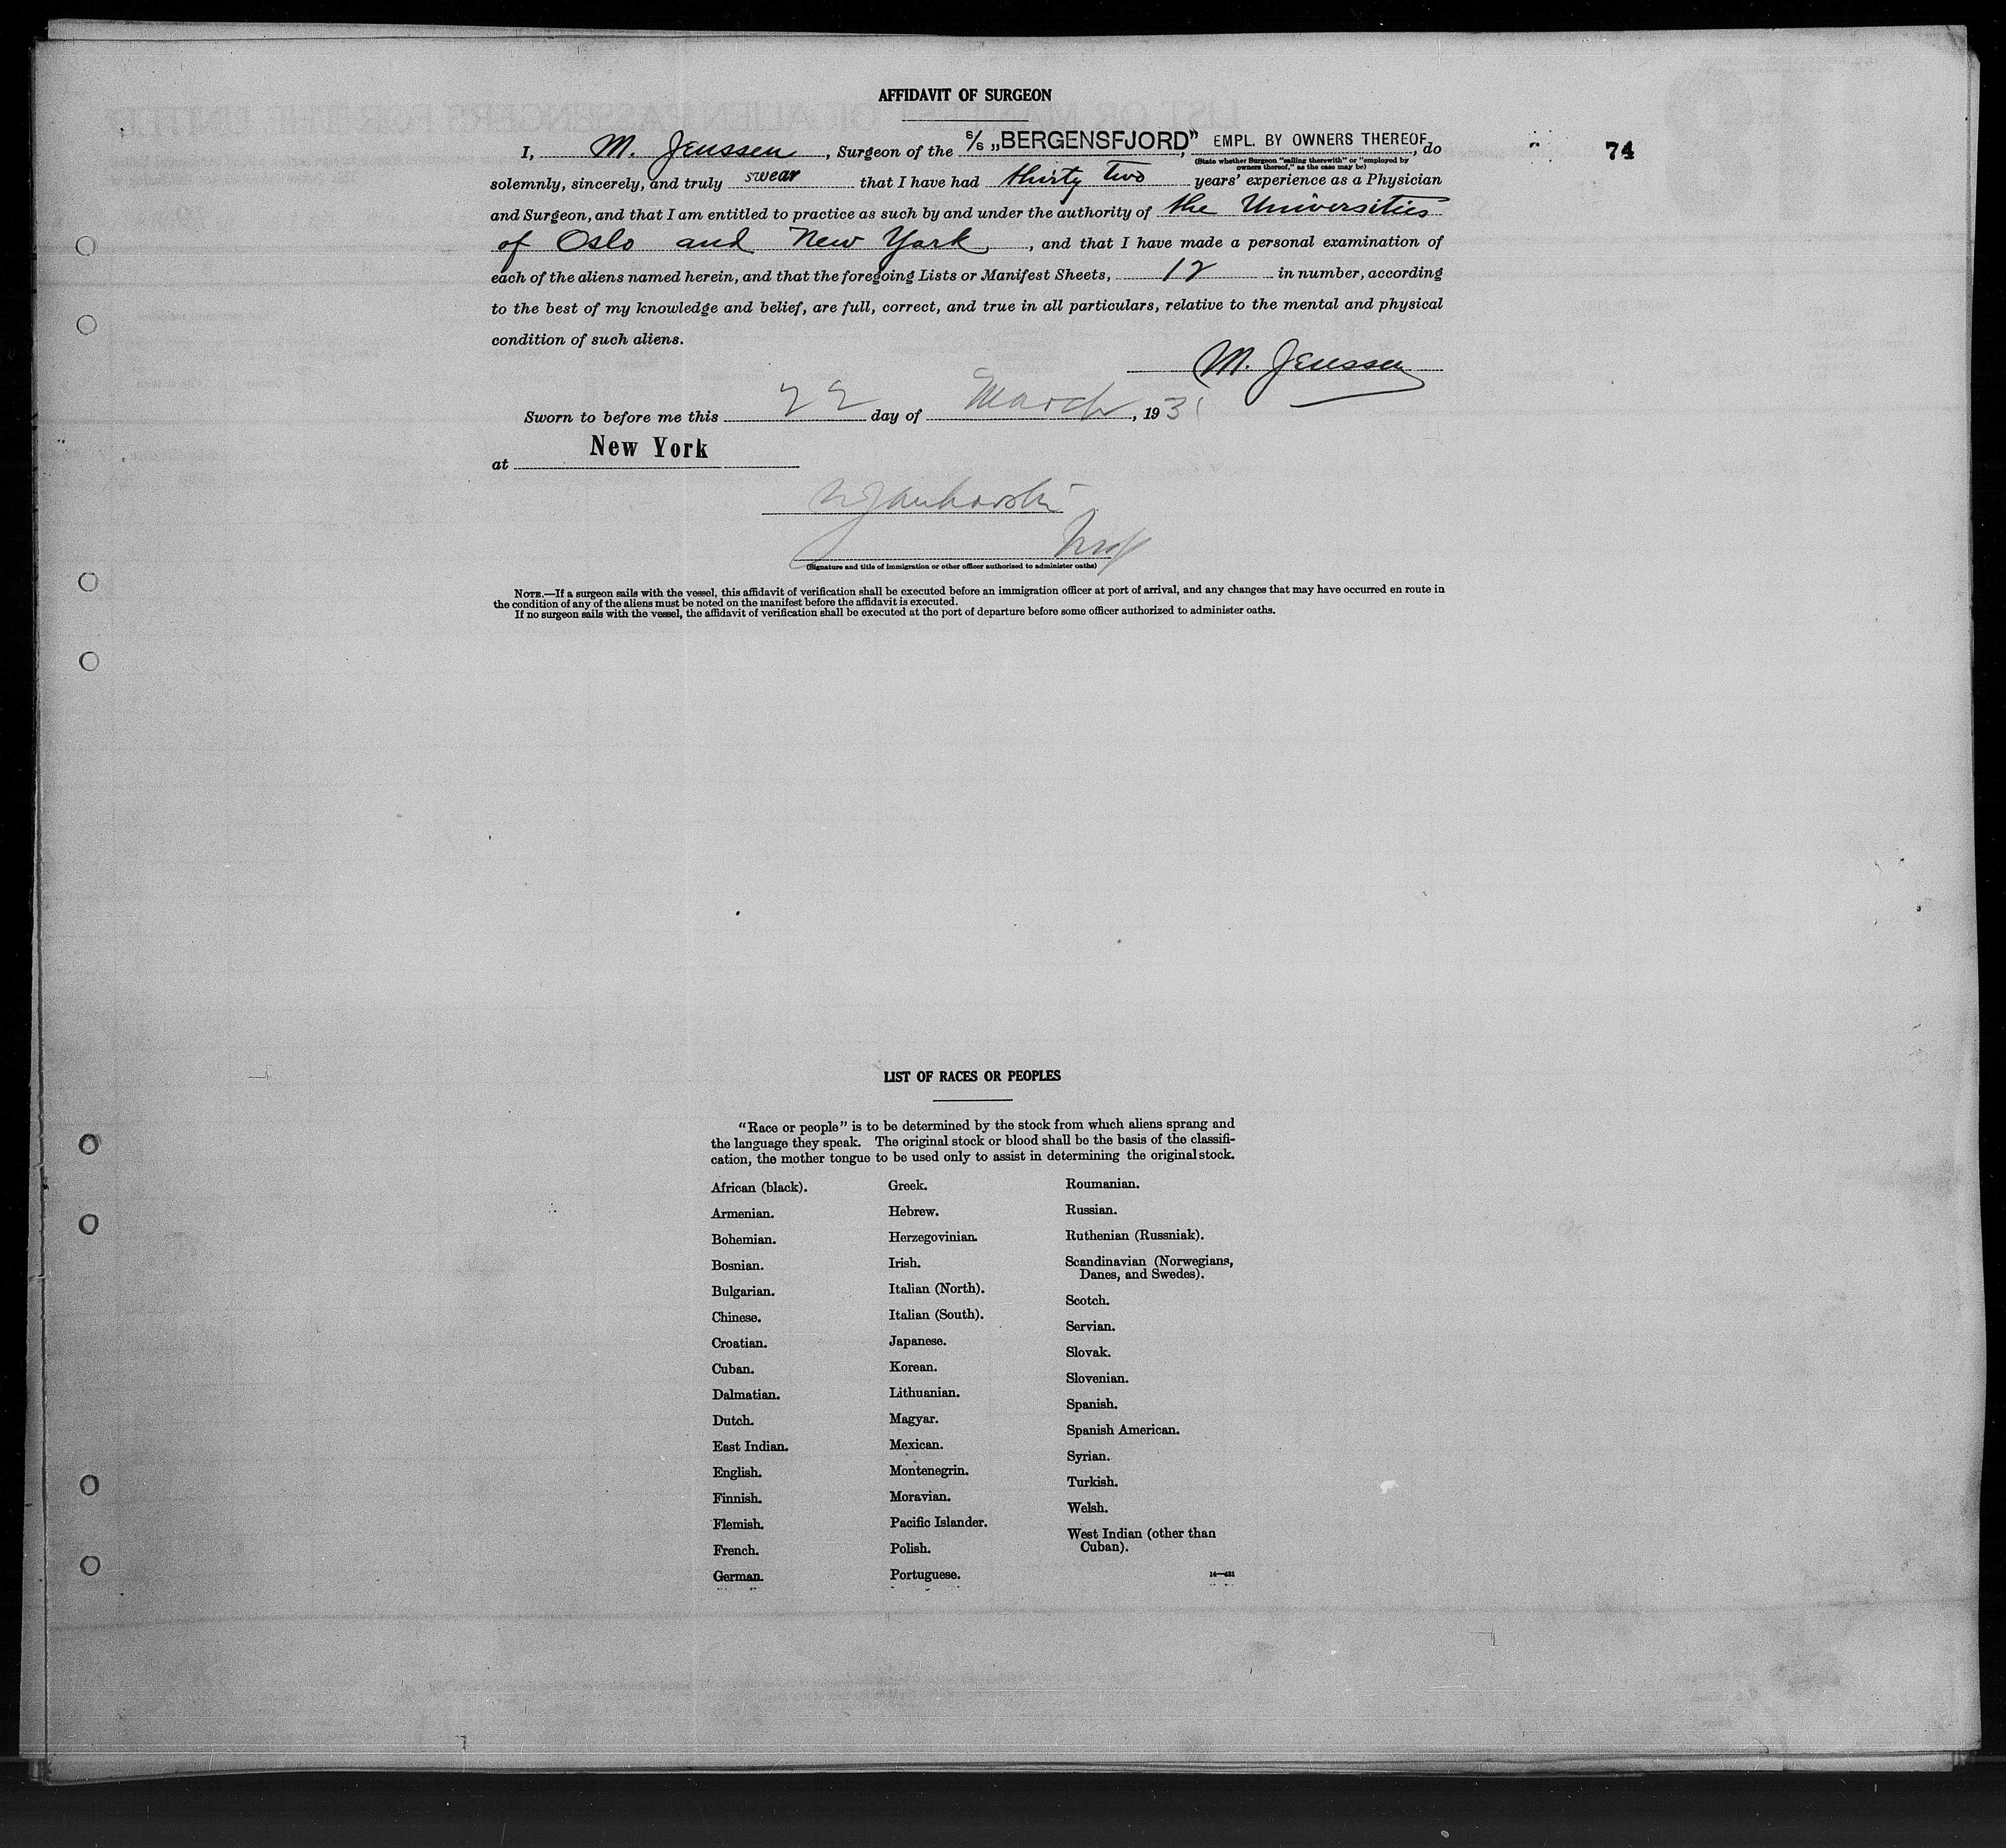 AFFIDAVIT OF SURGEON
I, M. Jenssen, Surgeon of the S/S „BERGENSFJORD", EMPL. BY OWNERS THEREOF, do
74
(State whether Surgeon "sailing therewith" or "employed by
owners thereof," as the case may be)
solemnly, sincerely, and truly swear that I have had thirty two years' experience as a Physician
and Surgeon, and that I am entitled to practice as such by and under the authority of the Universities
of Oslo and New York, , and that I have made a personal examination of
each of the aliens named herein, and that the foregoing Lists or Manifest Sheets, 12 in number, according
to the best of my knowledge and belief, are full, correct, and true in all particulars, relative to the mental and physical
condition of such aliens.
M. Jenssen
Sworn to before me this 22 day of March, 1931
at New York
(Signature and title of immigration or other officer authorized to administer oaths)
NOTE.—If a surgeon sails with the vessel, this affidavit of verification shall be executed before an immigration officer at port of arrival, and any changes that may have occurred en route in
the condition of any of the aliens must be noted on the manifest before the affidavit is executed.
If no surgeon sails with the vessel, the affidavit of verification shall be executed at the port of departure before some officer authorized to administer oaths.
LIST OF RACES OR PEOPLES
"Race or people" is to be determined by the stock from which aliens sprang and
the language they speak. The original stock or blood shall be the basis of the classifi-
cation, the mother tongue to be used only to assist in determining the original stock.
African (black).
Armenian.
Bohemian.
Bosnian.
Bulgarian.
Chinese.
Croatian.
Cuban.
Dalmatian.
Dutch.
East Indian.
English.
Finnish.
Flemish.
French.
German.
Greek.
Hebrew.
Herzegovinian.
Irish.
Italian (North).
Italian (South).
Japanese.
Korean.
Lithuanian.
Magyar.
Mexican.
Montenegrin.
Moravian.
Pacific Islander.
Polish.
Portuguese.
Roumanian.
Russian.
Ruthenian (Russniak).
Scandinavian (Norwegians,
Danes, and Swedes).
Scotch.
Servian.
Slovak.
Slovenian.
Spanish.
Spanish American.
Syrian.
Turkish.
Welsh.
West Indian (other than
Cuban).